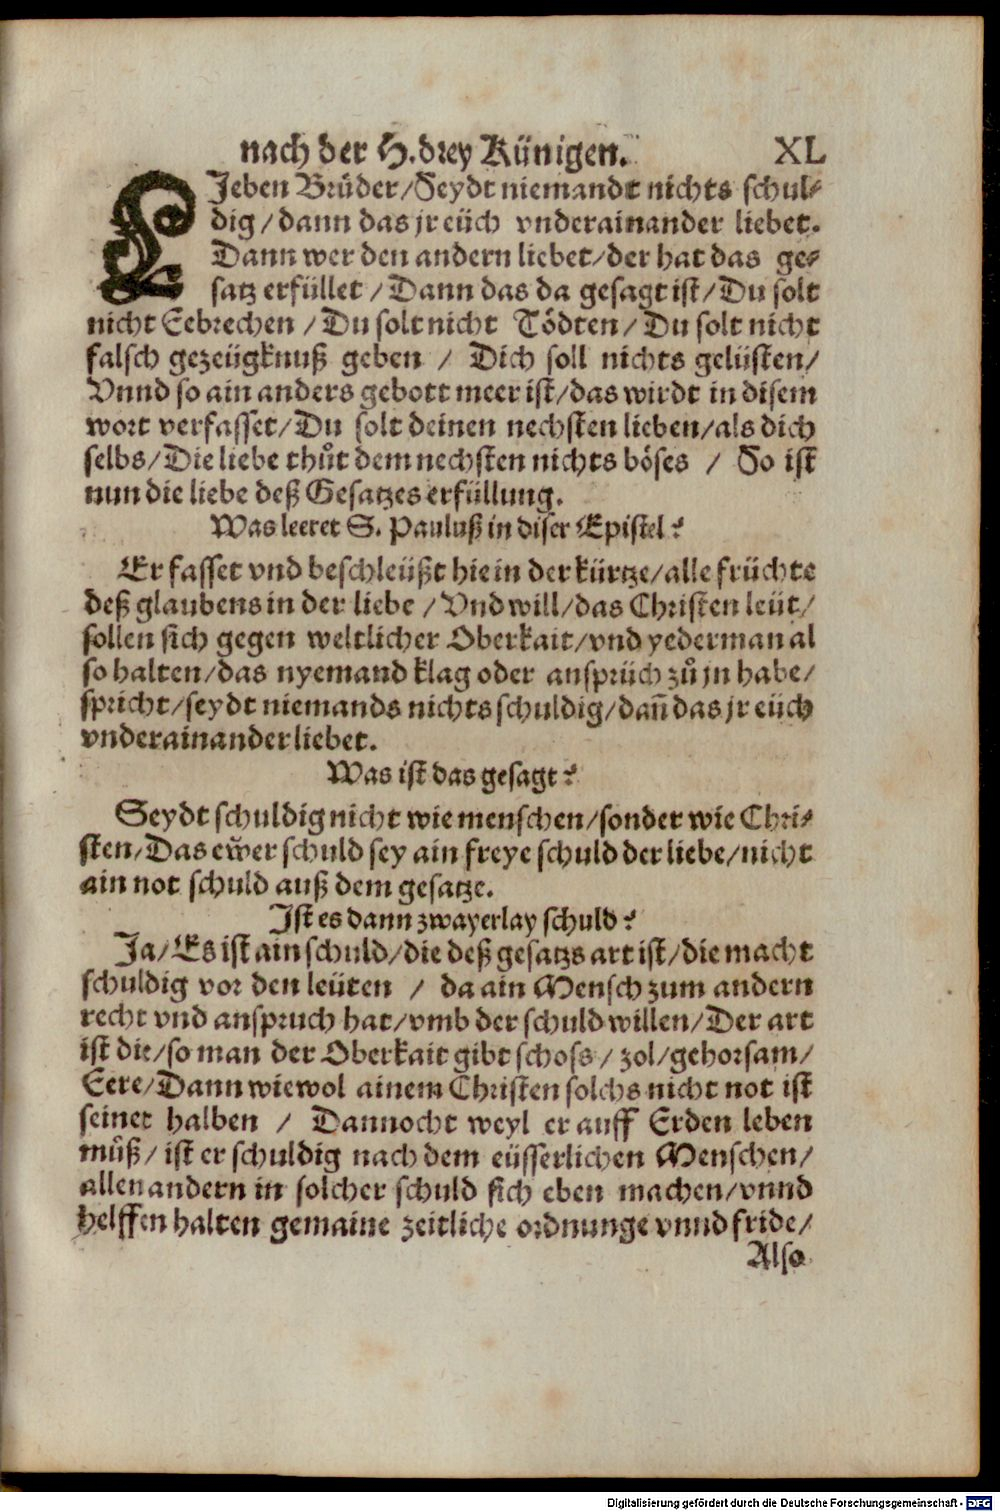 nach der H. drey Künigen. XL
LJeben Brůder/Seydt niemandt nichts schul⸗
dig/dann das jr eüch vnderainander liebet.
Dann wer den andern liebet/der hat das ge⸗
satz erfüllet/Dann das da gesagt ist/Du solt
nicht Eebrechen/Du solt nicht Tödten/Du solt nicht
falsch gezeügknuß geben/Dich soll nichts gelüsten/
Vnnd so ain anders gebott meer ist/das wirdt in disem
wort verfasset/Du solt deinen nechsten lieben/als dich
selbs/Die liebe thůt dem nechsten nichts böses/So ist
nun die liebe deß Gesatzes erfüllung.
Was leeret S. Pauluß in diser Epistel?
Er fasset vnd beschleüßt hie in der kürtze/alle früchte
deß glaubens in der liebe/Vnd will/das Christen leüt/
sollen sich gegen weltlicher Oberkait/vnd yederman al
so halten/das nyemand klag oder ansprüch zů jn habe/
spricht/seydt niemands nichts schuldig/dañ das jr eüch
vnderainander liebet.
Was ist das gesagt?
Seydt schuldig nicht wie menschen/sonder wie Chri⸗
sten/Das eẅer schuld sey ain freye schuld der liebe/nicht
ain not schuld auß dem gesatze.
Ist es dann zwayerlay schuld?
Ja/Es ist ain schuld/die deß gesatzs art ist/die macht
schuldig vor den leüten/da ain Mensch zum andern
recht vnd anspruch hat/vmb der schuld willen/Der art
ist die/so man der Oberkait gibt schoss/zol/gehorsam/
Eere/Dann wiewol ainem Christen solchs nicht not ist
seinet halben/Dannocht weyl er auff Erden leben
můß/ist er schuldig nach dem eüsserlichen Menschen/
allen andern in solcher schuld sich eben machen/vnnd
helffen halten gemaine zeitliche ordnunge vnnd fride/
Also
Digitalisierung gefördert durch die Deutsche Forschungsgemeinschaft - DFG